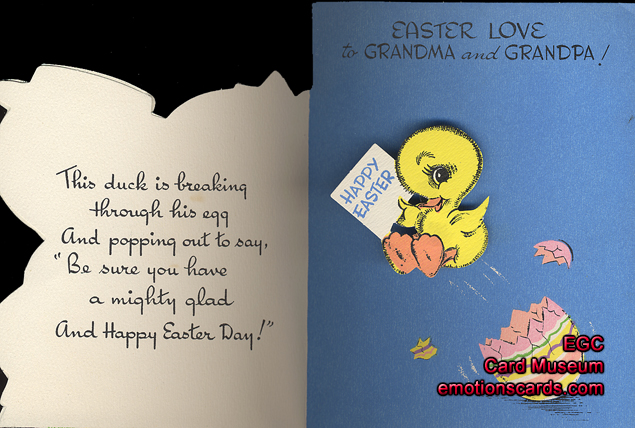 This duck is breaking
through his egg
And popping out to say,
"Be sure you have
a mighty glad
And Happy Easter Day!"
EASTER LOVE
to GRANDMA and GRANDPA!
HAPPY
EASTER
EGC
Card Museum
emotionscards.com